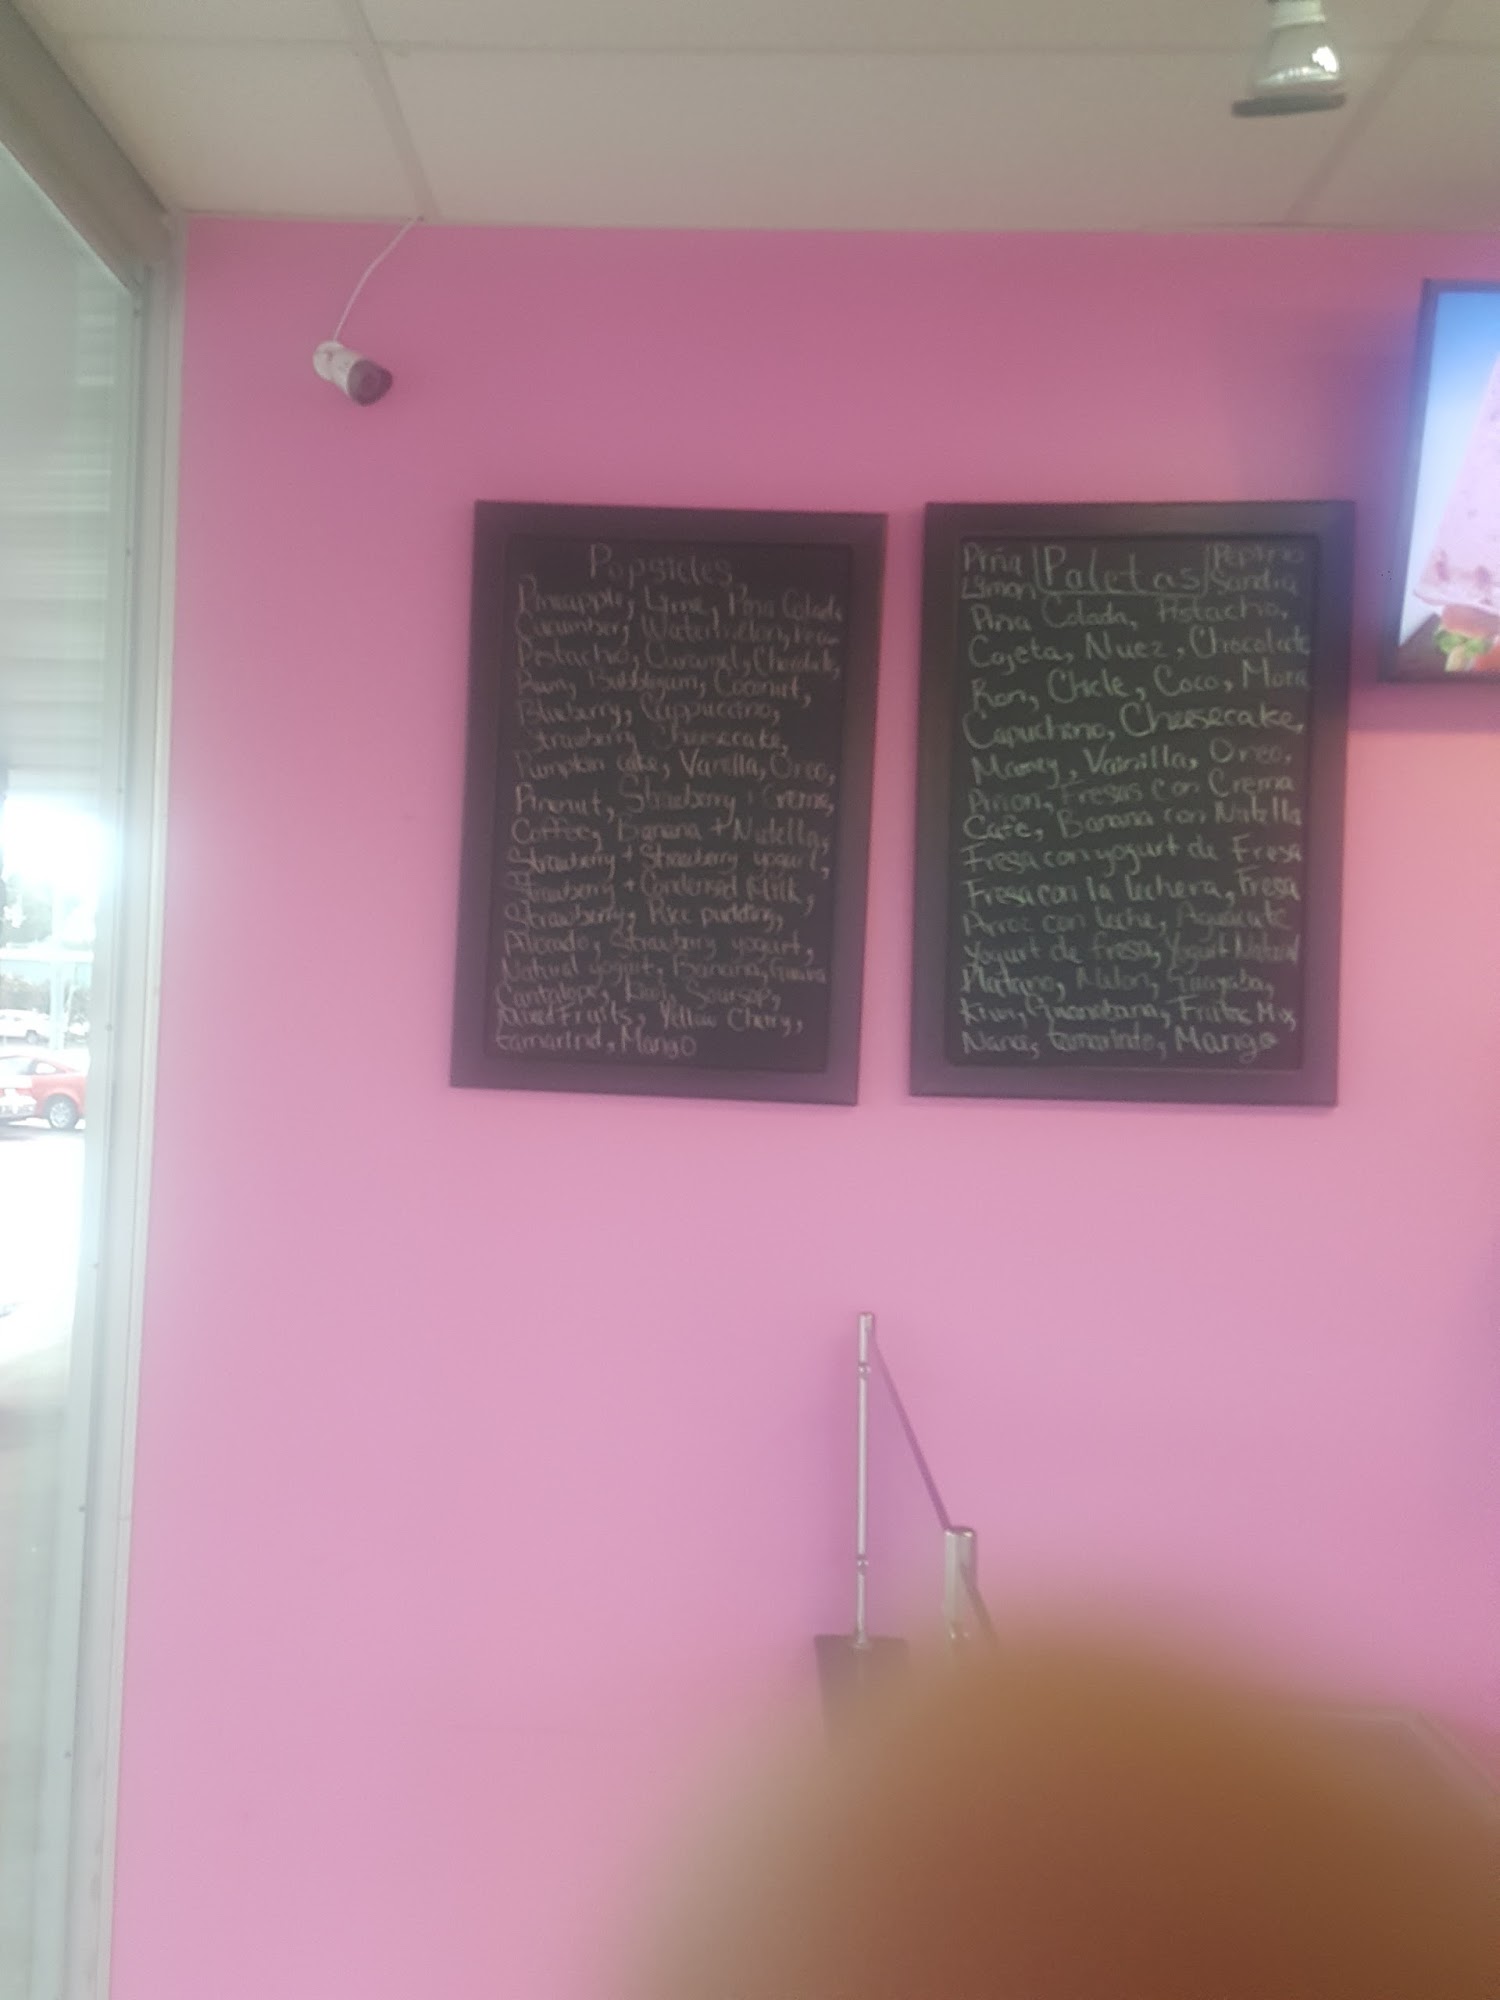 Popsicles
Pineapple, Lime, Pina Colada
Cucumber, Watermelon,
Pistachio, Caramel, Chocolate,
Rum, Bubblegum, Coconut,
Blueberry, Cappuccino,
Strawberry Cheesecake,
Pumpkin cake, Vanilla, Oreo,
Pinenut, Strawberry + Creme,
Coffee, Banana + Nutella,
Strawberry + Strawberry yogurt,
Strawberry + Condensed Milk,
Strawberry, Rice pudding,
Strawberry yogurt,
Natural yogurt, Banana, Guava
Cantalope, Kiwi, Soursop,
Mixed Fruits, Yellow Cherry,
tamarind, Mango
Paletas
Piña
Lymon
Pepino
Sandia
Piña Colada, Pistacho,
Cajeta, Nuez, Chocolate
Ron, Chicle, Coco, Mora
Capuchino, Cheesecake,
Mamey, Vainilla, Oreo,
Piñon, Fresas con Crema
Cafe, Banana con Nutella
Fresa con yogurt de Fresa
Fresa con la lechera, Fresa
Arroz con leche, Aguacate
Yogurt de fresa, Yogurt Natural
Platano, Melon, Guayaba,
Kiwi, Guanabana, Frutas Mix,
Nana, tamarindo, Mango